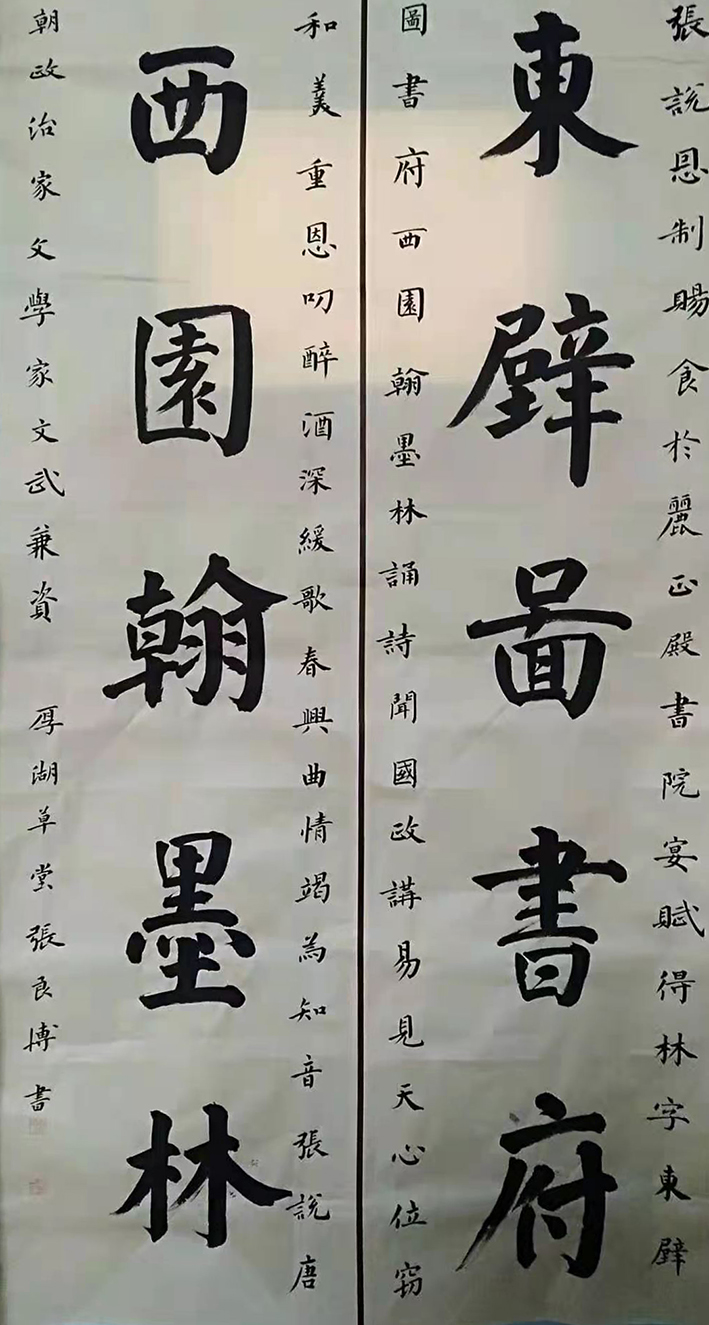 張說恩制賜食於麗正殿書院宴賦得林字東壁
東壁圖書府
圖書府西園翰墨林誦詩聞國政講易見天心位竊
和羹重恩叨醉酒深緩歌春興曲情竭為知音張說唐
西園翰墨林
朝政治家文學家文武兼資 厚湖草堂張良博書